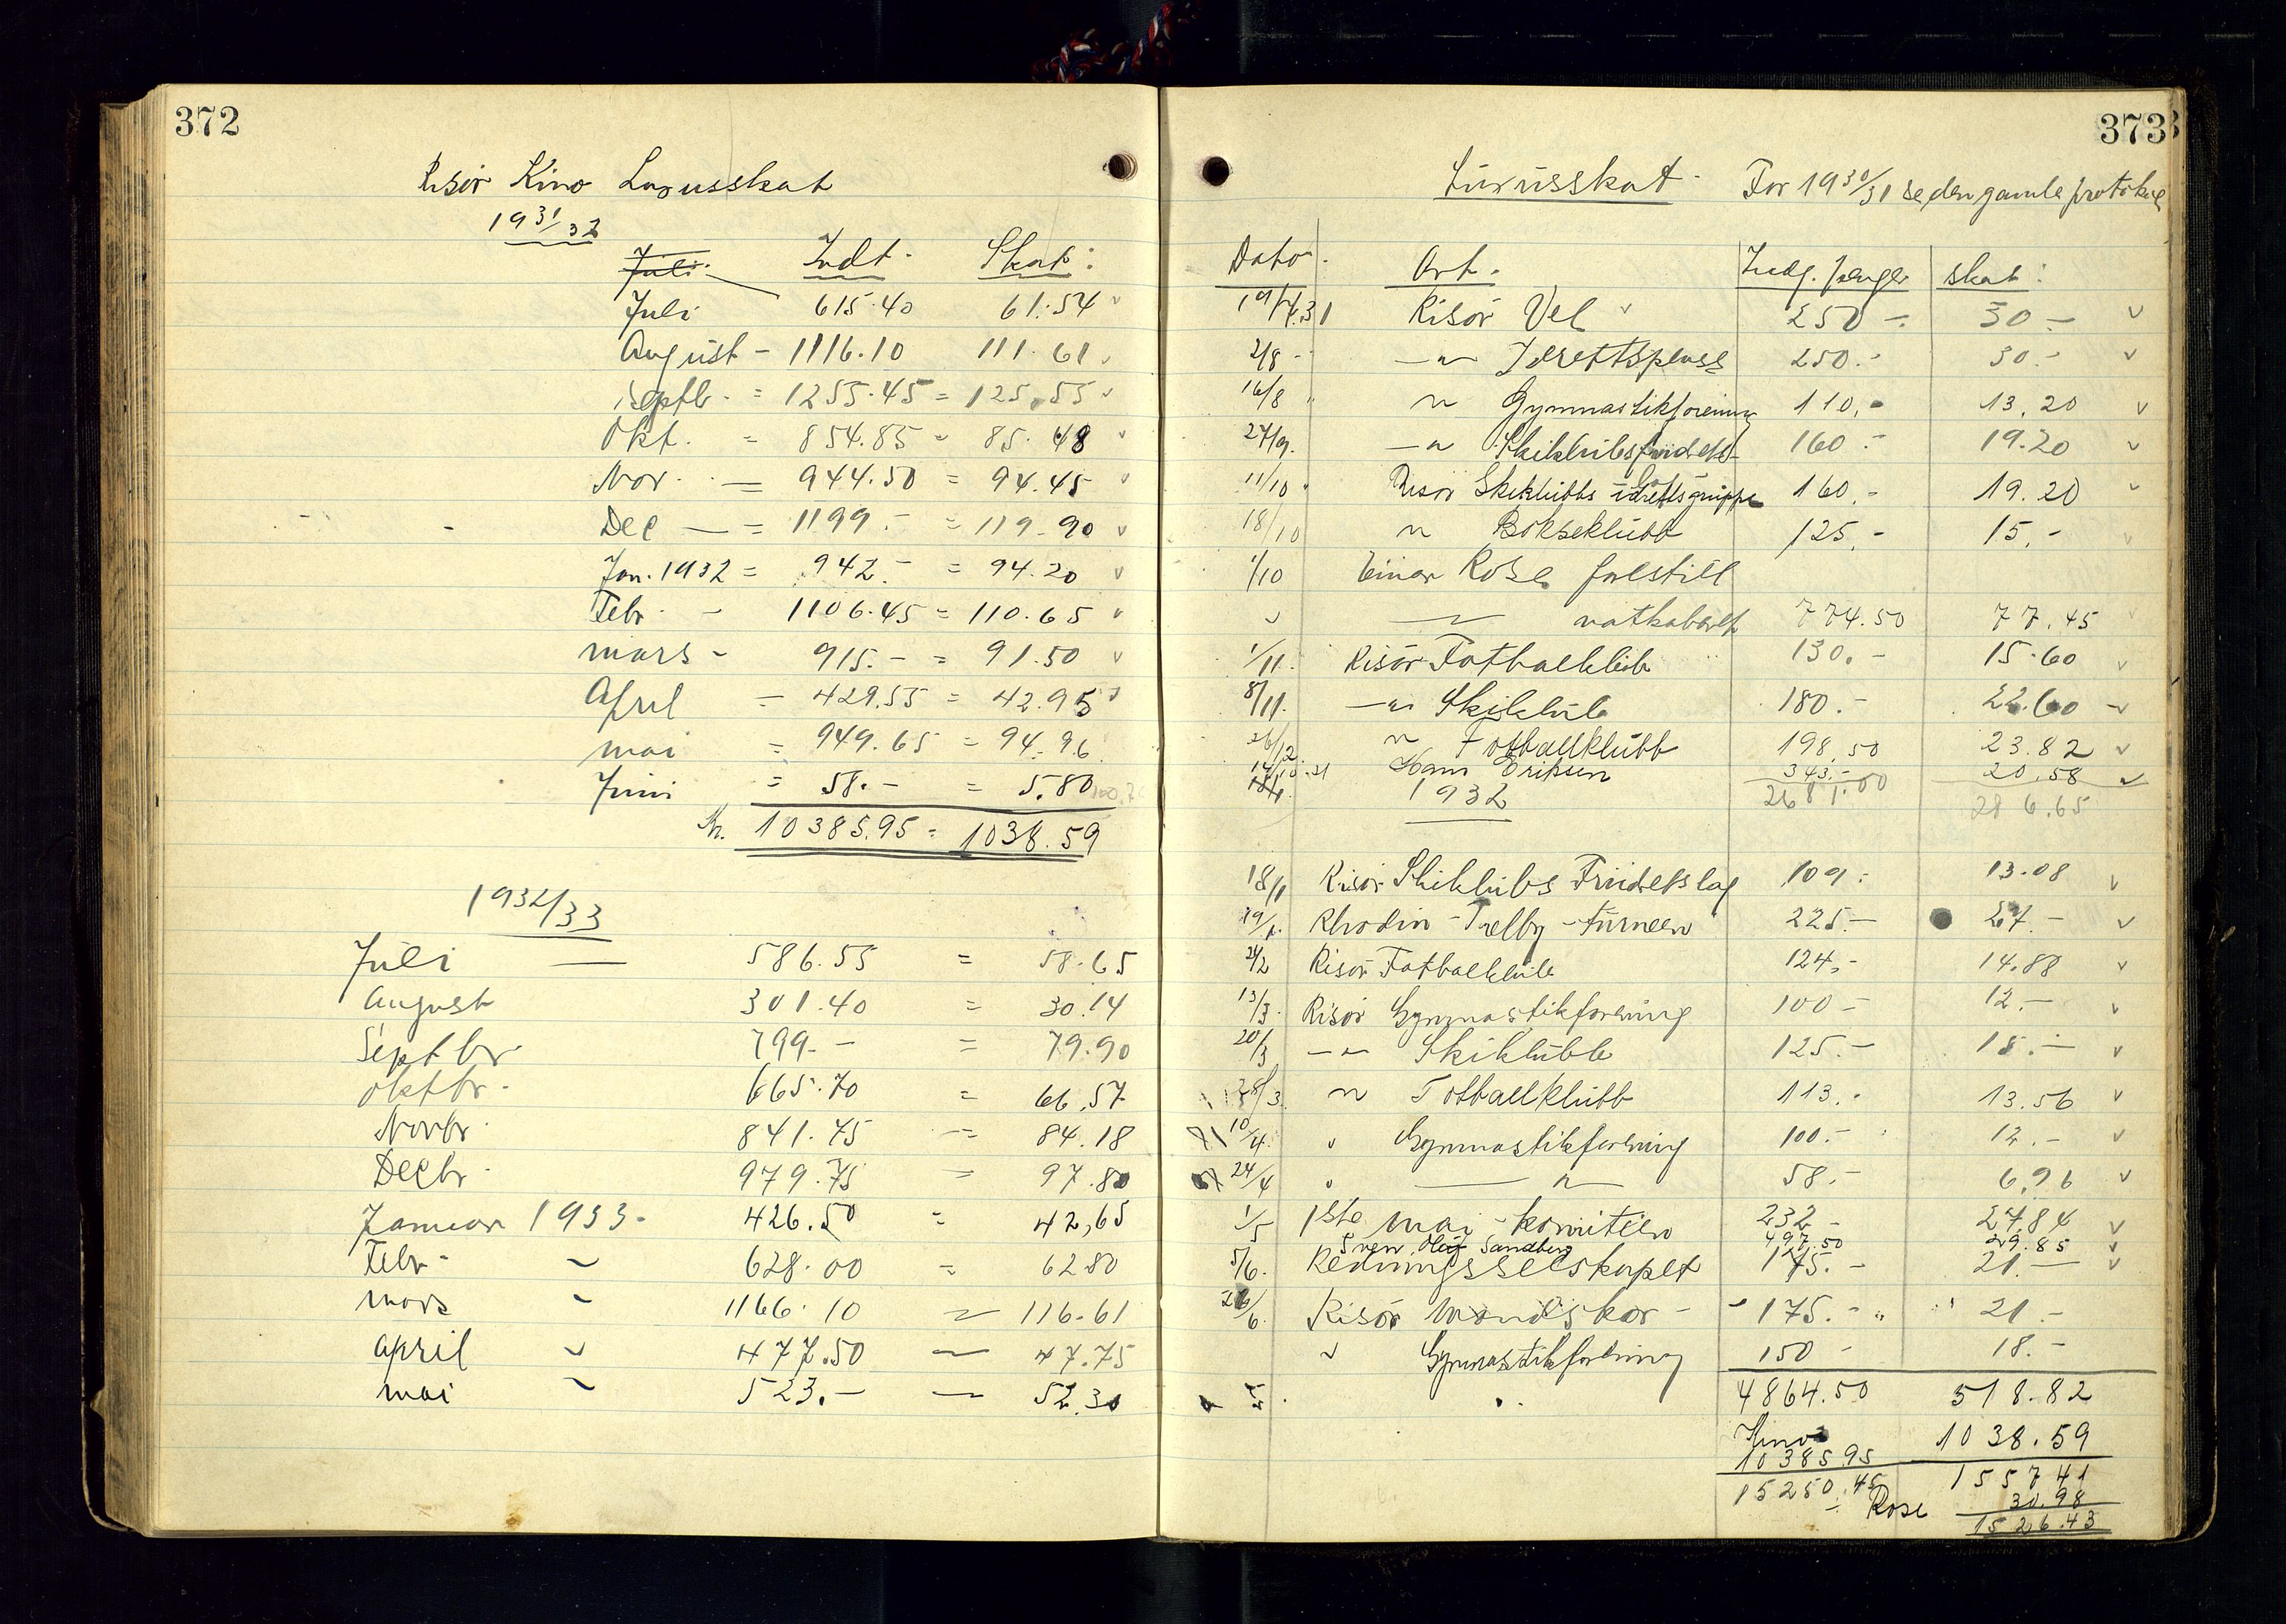 372
Risör Kino Luxusskat
1931/32
Juli Indt. Skat:
Juli 615.40 61.54
August - 1116.10 111.61
Septb. = 1255.45 = 125.55
Okt. = 854.85 = 85.48
Nov. = 944.50 = 94.45
Dec = 1199.- = 119.90
Jan. 1932 = 942.- = 94.20
Febr. - 1106.45 = 110.65
mars - 915.- = 91.50
April - 429.55 = 42.95
mai = 949.65 = 94.96
Juni = 58.- = 5.80
Kr. 10385.95 = 1038.59
1932/33
Juli — 586.55 = 58.65
August 301.40 = 30.14
Septbr. 799.- = 79.90
Oktbr. 665.70 = 66.57
Novbr. 841.75 = 84.18
Decbr. 979.75 = 97.80
Januar 1933 - 426.50 = 42,65
Febr - 628.00 = 62.80
mars 1166.10 = 116.61
april 477.50 — 47.75
mai 523.- — 52.30
373
Luxusskat. For 1930/31 se den gamle protokol
Dato. Art. Indg. penger skat:
19/7.31 Risör Vel 250 -. 30 -
2/8 - —"— Idrettsplass 250.- 30.-
16/8 " " Gymnastikforening 110.- 13.20
27/9. —" Skiklubs friidrett 160.- 19.20
11/10 " Risör Skiklubbs idrettsgruppe 160.- 19.20
18/10 " Bokseklubb 125.- 15.-
1/10 Einar Rose forestill
" —"— natkabaret 774.50 77.45
1/11. Risör Fotballklub 130.- 15.60
8/11. —" Skiklub 180.- 22.60
26/12. " Fotballklubb 198.50 23.82
14/10.31 Hans Eriksen 343.- 20.58
1932 2681.00 286.65
18/1 Risör Skiklubs Friidretslag 109.- 13.08
19/1. Rhodin - Trelby - turneen 225.- 27.-
21/2 Risör Fotballklub 124.- 14.88
13/3. Risör Gymnastikforening 100 - 12.-
20/3 —"— Skiklubb 125.- 15.-
28/3. " Fotballklubb 113.- 13.56
10/4. " Gymnastikforening 100.- 12.-
24/4 " —"— 58.- 6.96
1/5 1ste mai - komitéen 232 - 27.84
Sven Oluf Sandberg 497.50 29.85
5/6. Redningsselskapet 175.- 21.-
26/6. Risör Mandskor - 175.- 21.-
" Gymnastikforening 150 - 18.-
4864.50 518.82
Kino 1038.59
10385.95
15250.45 1557.41
÷ Rose 30.98
1526.43